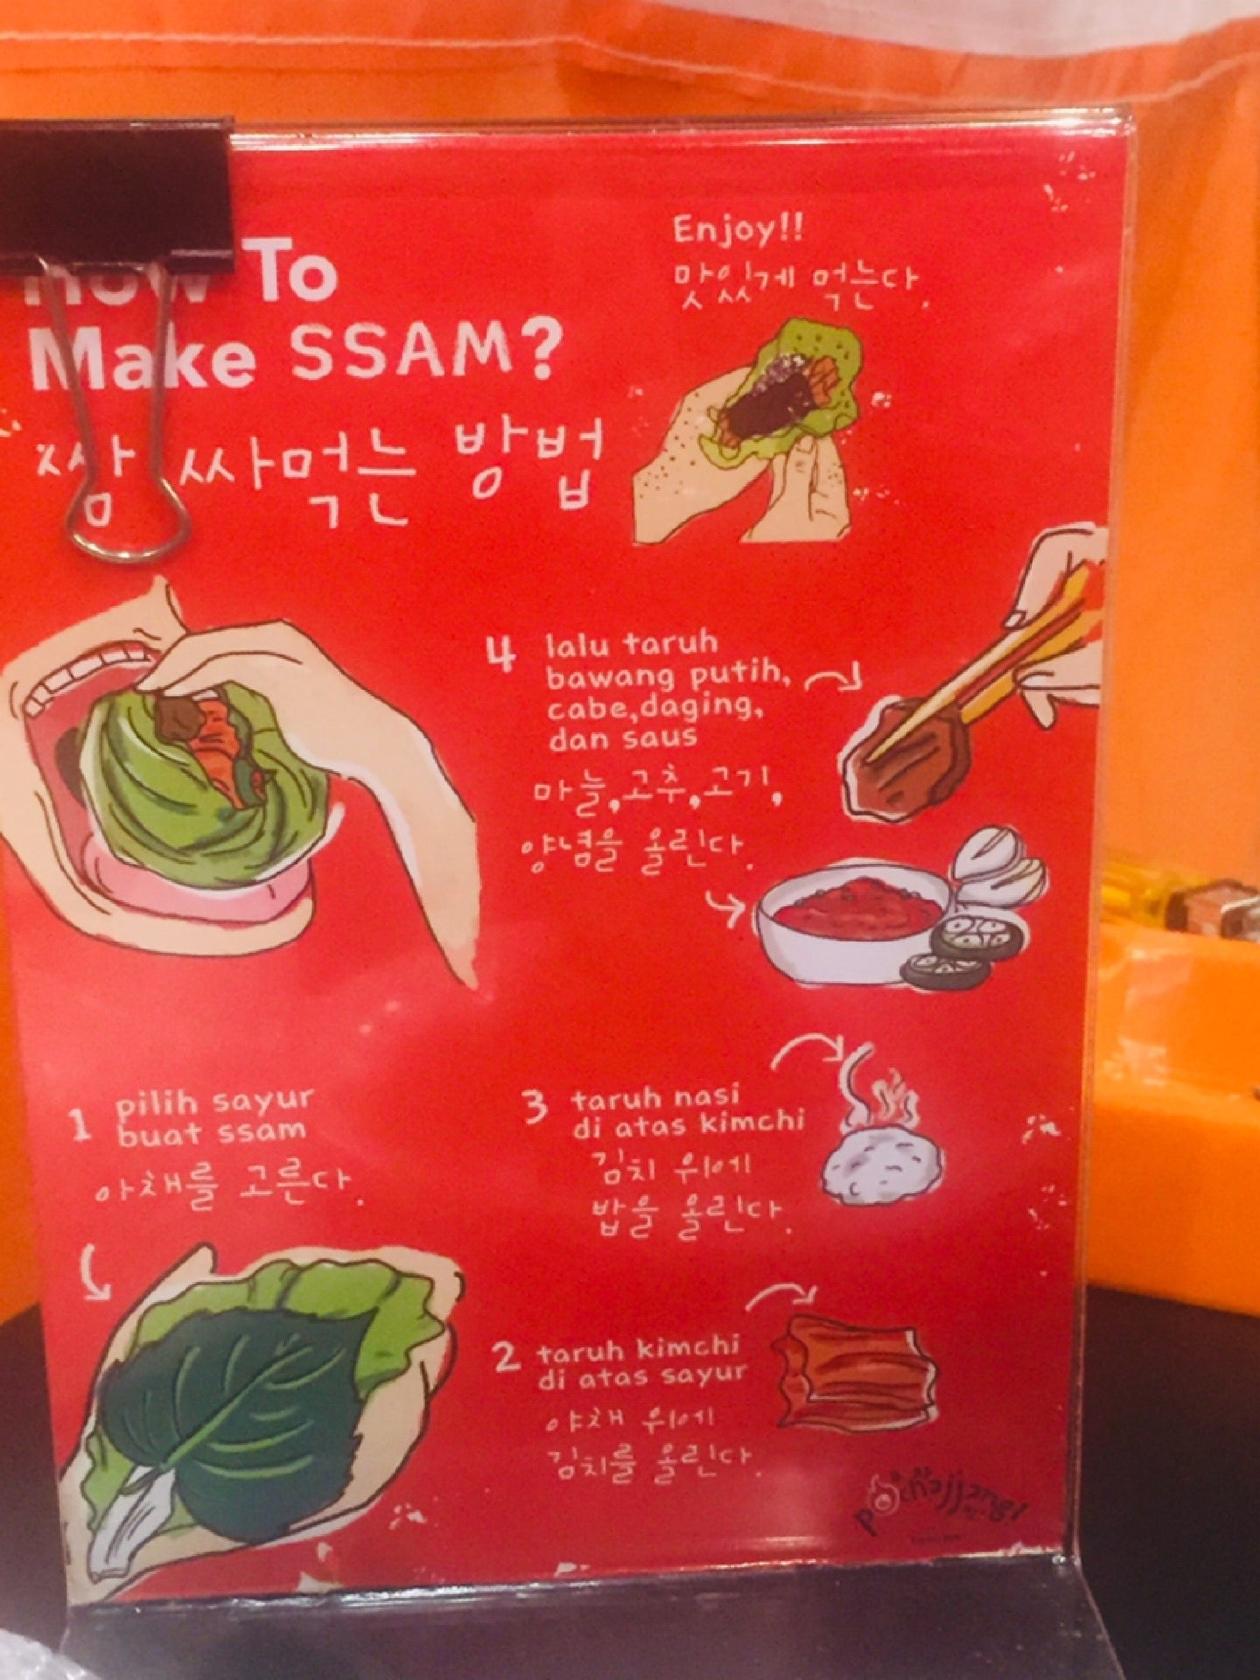 How To
Make SSAM?
쌈 싸먹는 방법
Enjoy!!
맛있게 먹는다.
1 pilih sayur
buat ssam
야채를 고른다.
2 taruh kimchi
di atas sayur
야채 위에
김치를 올린다.
3 taruh nasi
di atas kimchi
김치 위에
밥을 올린다.
4 lalu taruh
bawang putih,
cabe,daging,
dan saus
마늘,고추,고기,
양념을 올린다.
pochajjang!